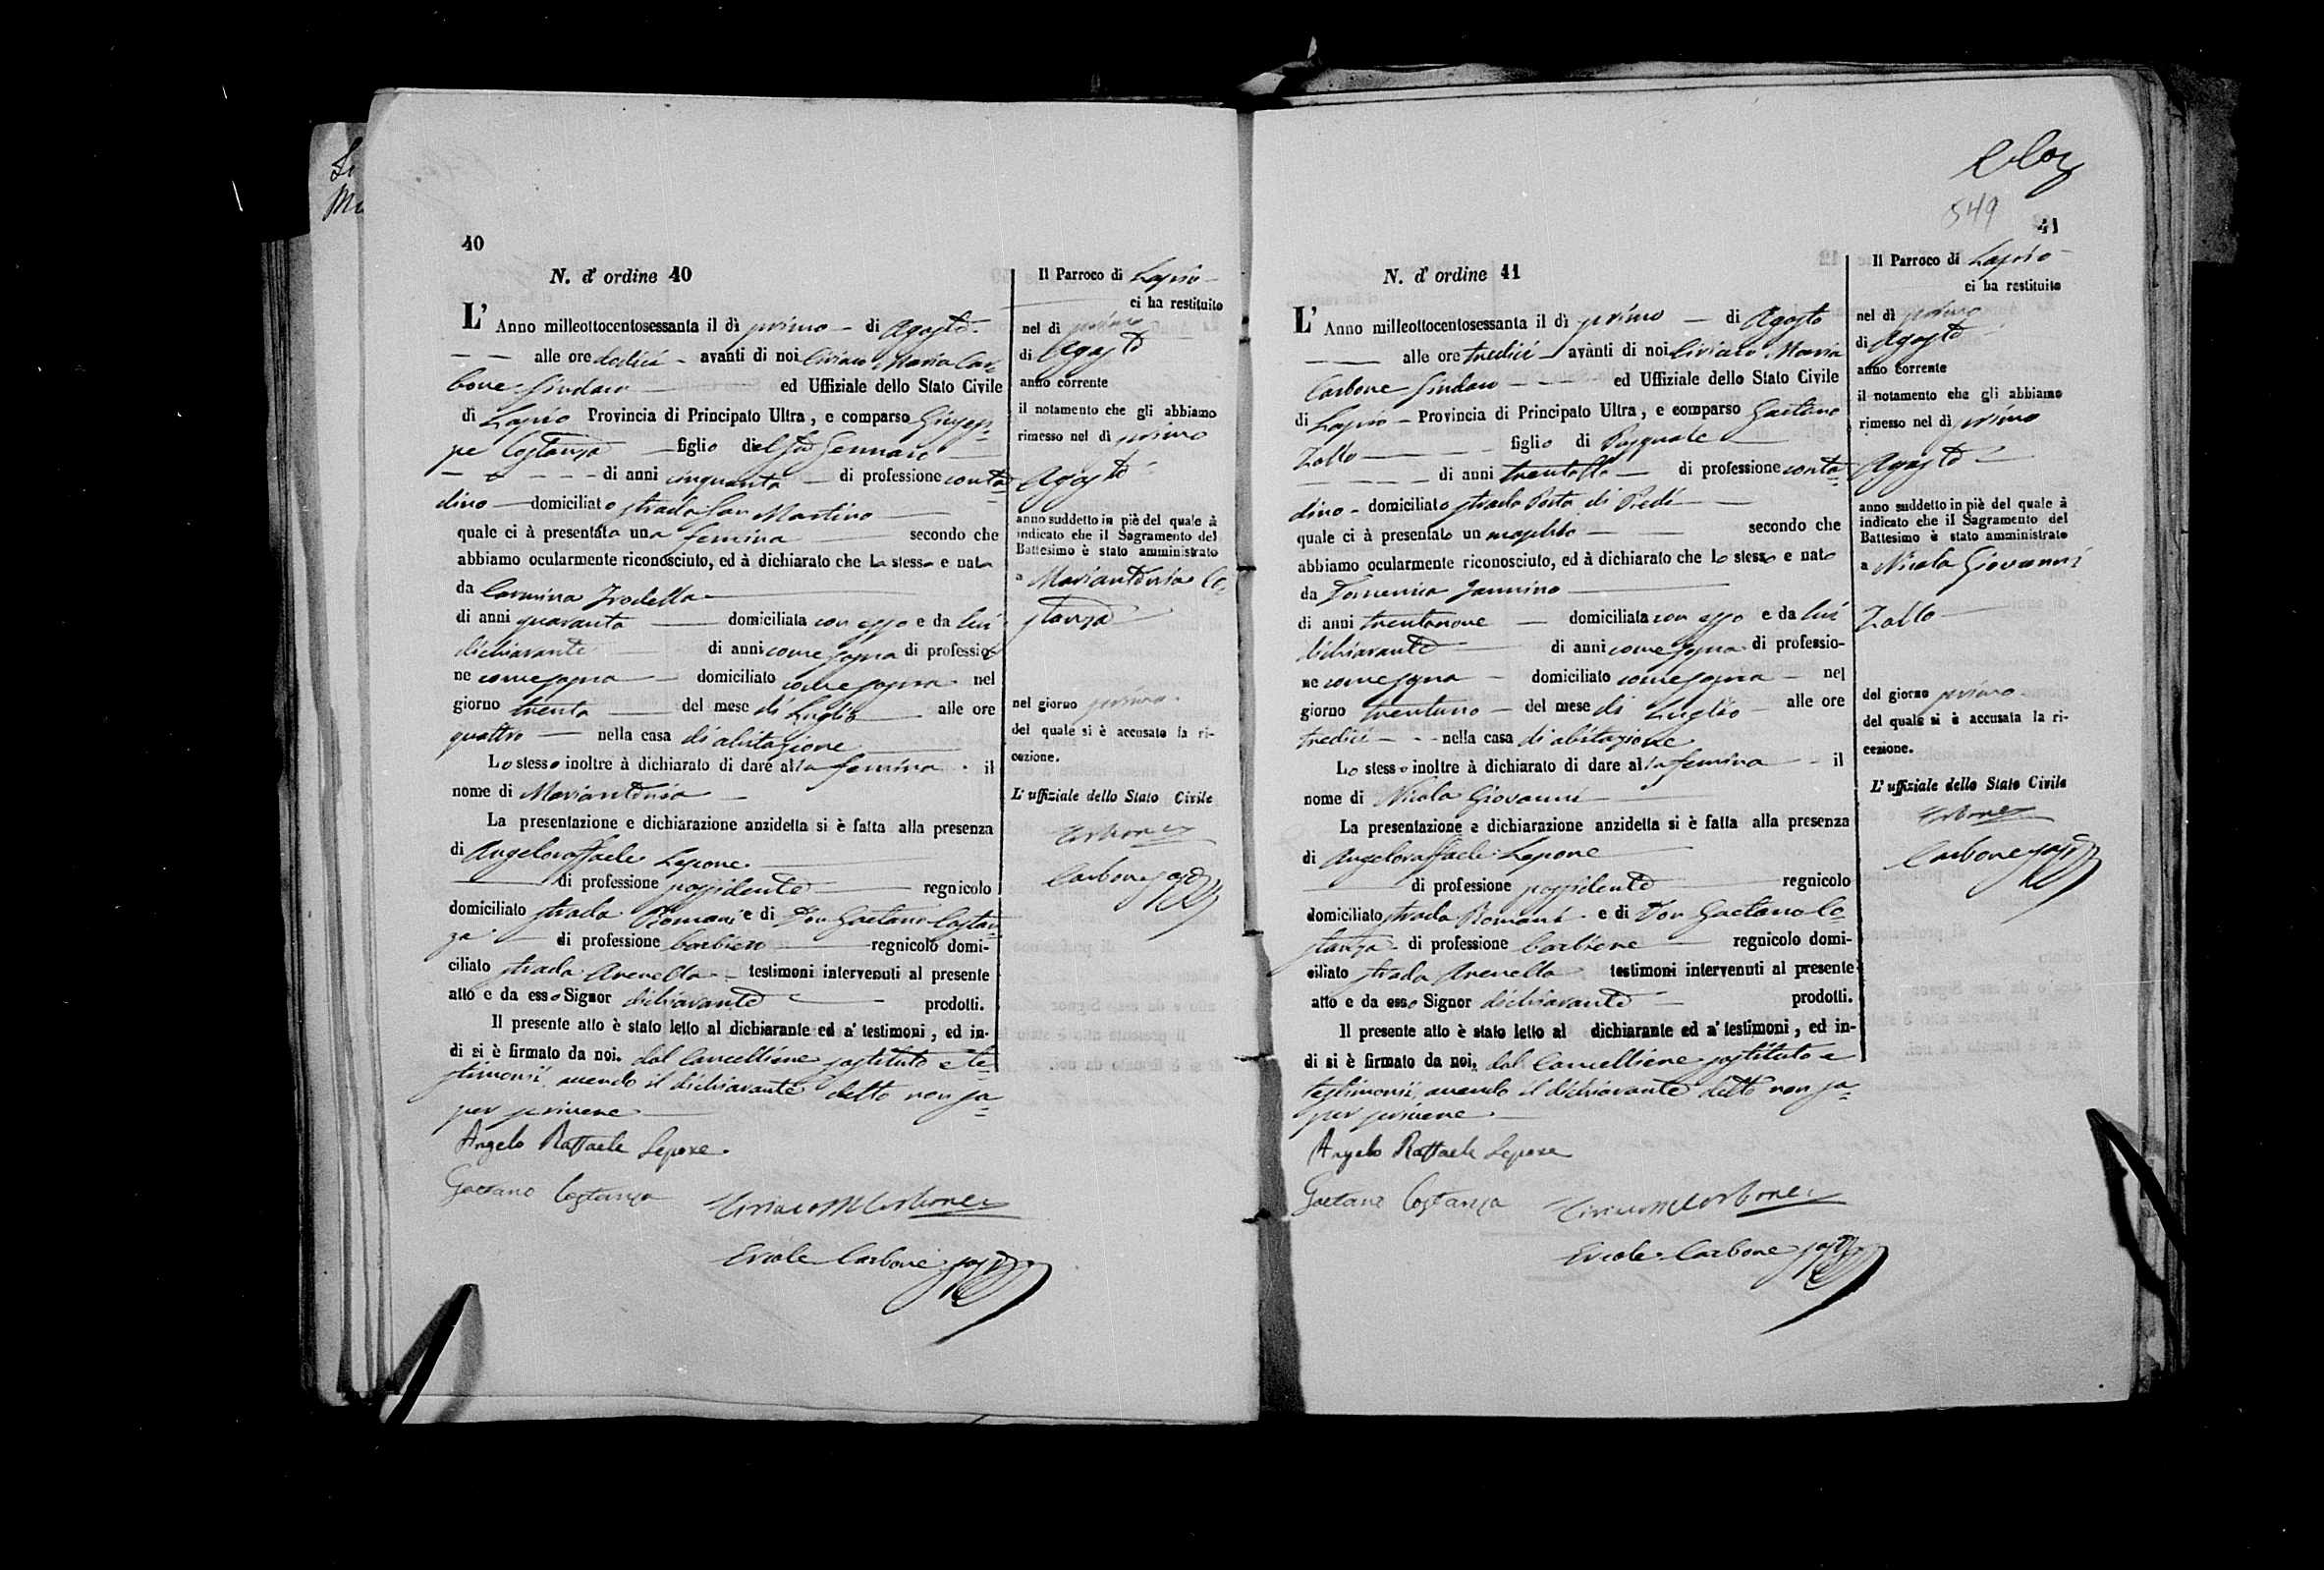 40
N. d' ordine 40
L' Anno milleottocentosessanta il dì primo di Agosto
alle ore dodici avanti di noi Ciriaco Maria Car=
bone Sindaco ed Uffiziale dello Stato Civile
di Lapio Provincia di Principato Ultra, e comparso Giusep=
pe Costanza figlio del fu Gennaro
di anni cinquanta di professione conta=
dino domiciliato strada San Martino
quale ci à presentata una femina secondo che
abbiamo ocularmente riconosciuto, ed à dichiarato che La stessa e nata
da Carmina Trodella
di anni quaranta domiciliata con esso e da lui
dichiarante di anni come sopra di professio-
ne come sopra domiciliato come sopra nel
giorno trenta del mese di Luglio alle ore
quattro nella casa di abitazione
Lo stesso inoltre à dichiarato di dare alla femina il
nome di Mariantonia
La presentazione e dichiarazione anzidetta si è fatta alla presenza
di Angeloraffaele Lepone
di professione possidente regnicolo
domiciliato strada Romani e di Don Gaetano Costan
za di professione barbiere regnicolo domi-
ciliato strada Arenella testimoni intervenuti al presente
atto e da esso Signor dichiarante prodotti.
Il presente atto è stato letto al dichiarante ed a' testimoni, ed in-
di si è firmato da noi. dal Cancelliere sostituto e te=
stimonii, avendo il dichiarante detto non sa=
per scrivere
Angelo Raffaele Lepore
Gaetano Costanza
Ciriaco M Carbone
Ercole Carbone sosto
Il Parroco di Lapio
ci ha restituito
nel dì primo
di Agosto
anno corrente
il notamento che gli abbiamo
rimesso nel dì primo
Agosto
anno suddetto in piè del quale à
indicato che il Sagramento del
Battesimo è stato amministrato
a Mariantonia Co-
stanza
nel giorno primo
del quale si è accusato la ri-
cezione.
L'uffiziale dello Stato Civile
Carbone
Carbone sosto
549
41
N. d' ordine 41
L' Anno milleottocentosessanta il dì primo di Agosto
alle ore tredici avanti di noi Ciriaco Maria
Carbone Sindaco ed Uffiziale dello Stato Civile
di Lapio Provincia di Principato Ultra, e comparso Gaetano
Zollo figlio di Pasquale
di anni trentotto di professione conta=
dino domiciliato strada Porta di Piedi
quale ci à presentato un maschio secondo che
abbiamo ocularmente riconosciuto, ed à dichiarato che Lo stesso e nato
da Domenica Jannino
di anni trentanove domiciliata con esso e da lui
dichiarante di anni come sopra di professio-
ne come sopra domiciliato come sopra nel
giorno trentuno del mese di Luglio alle ore
tredici nella casa di abitazione
Lo stesso inoltre à dichiarato di dare alla femina il
nome di Nicola Giovanni
La presentazione e dichiarazione anzidetta si è fatta alla presenza
di Angeloraffaele Lepone
di professione possidente regnicolo
domiciliato strada Romani e di Don Gaetano Co=
stanza di professione barbiere regnicolo domi-
ciliato strada Arenella testimoni intervenuti al presente
atto e da esso Signor dichiarante prodotti.
Il presente atto è stato letto al dichiarante ed a' testimoni, ed in-
di si è firmato da noi, dal Cancelliere sostituto e
testimonii, avendo il dichiarante detto non sa=
per scrivere
Angelo Raffaele Lepore
Gaetano Costanza
Ciriaco M Carbone
Ercole Carbone sosto
Il Parroco di Lapio
ci ha restituito
nel dì primo
di Agosto
anno corrente
il notamento che gli abbiamo
rimesso nel dì primo
Agosto
anno suddetto in piè del quale à
indicato che il Sagramento del
Battesimo è stato amministrato
a Nicola Giovanni
Zollo
del giorno primo
del quale si è accusata la ri-
cezione.
L'uffiziale dello Stato Civile
Carbone
Carbone sosto